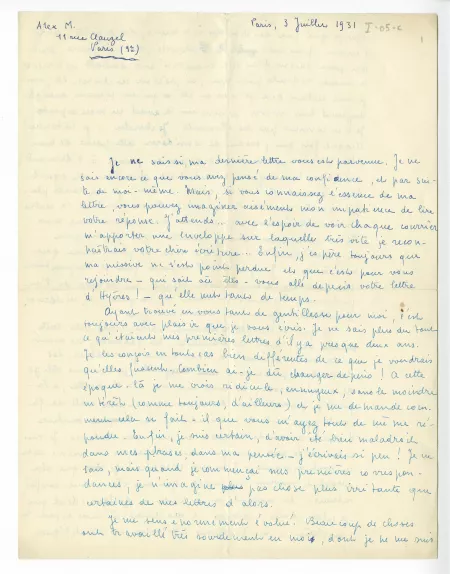 Alex M.
11 rue Clauzel
Paris (9e)
Paris, 3 Juillet 1931
I-05-c
1
Je ne sais si ma dernière lettre vous est parvenue. Je ne
sais encore ce que vous avez pensé de ma confidence, et par sui-
te de moi-même. Mais, si vous connaissez l'essence de ma
lettre vous pouvez imaginer aisément mon impatience de lire
votre réponse. J'attends... avec l'espoir de voir chaque courrier
m'apporter une enveloppe sur laquelle très vite je recon-
naîtrais votre chère écriture... Enfin, j'espère toujours que
ma missive ne s'est point perdue et que c'est pour vous
rejoindre - qui sait où êtes-vous allé depuis votre lettre
d'Hyères! - qu'elle met tant de temps.
Ayant trouvé en vous tant de gentillesse pour moi, c'est
toujours avec plaisir que je vous écris. Je ne sais plus du tout
ce qu'étaient mes premières lettres d'il y a presque deux ans.
Je les conçois en tout cas bien différentes de ce que je voudrais
qu'elles fussent. Combien ai-je dû changer depuis! A cette
époque-là je me crois ridicule, ennuyeux, sans le moindre
intérêt (comme toujours, d'ailleurs) et je me demande com-
ment cela se fait-il que vous m'ayez tout de même ré-
pondu. Enfin, je suis certain, d'avoir été bien maladroit
dans mes phrases, dans ma pensée - j'écrivais si peu! Je ne
sais, mais quand je commençai mes premières correspon-
dances, je n'imagine pas chose plus irritante que
certaines de mes lettres d'alors.
Je me sens énormément évolué. Beaucoup de choses
ont travaillé très sourdement en moi, dont je ne me suis